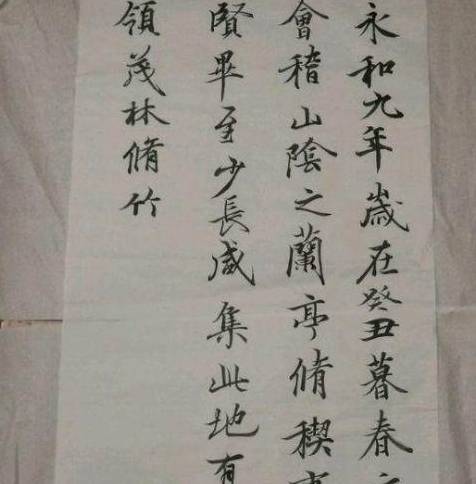 永和九年歲在癸丑暮春之
會稽山陰之蘭亭脩稧事
賢畢至少長咸集此地有
領茂林脩竹